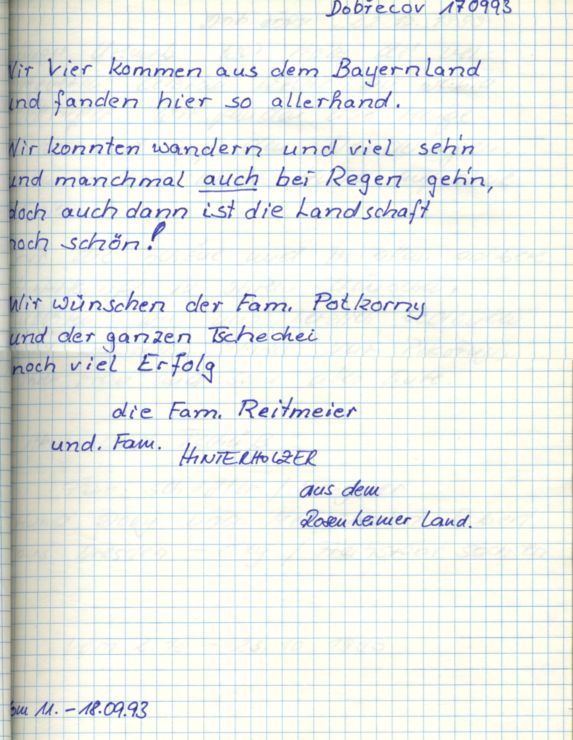 Dobřecov 170993
Wir Vier kommen aus dem Bayernland
und fanden hier so allerhand.
Wir konnten wandern und viel seh'n
und manchmal auch bei Regen geh'n,
doch auch dann ist die Landschaft
noch schön!
Wir wünschen der Fam. Potkorny
und der ganzen Tschechei
noch viel Erfolg
die Fam. Reitmeier
und. Fam. HINTERHOLZER
aus dem
Rosenheimer Land.
11. - 18.09.93